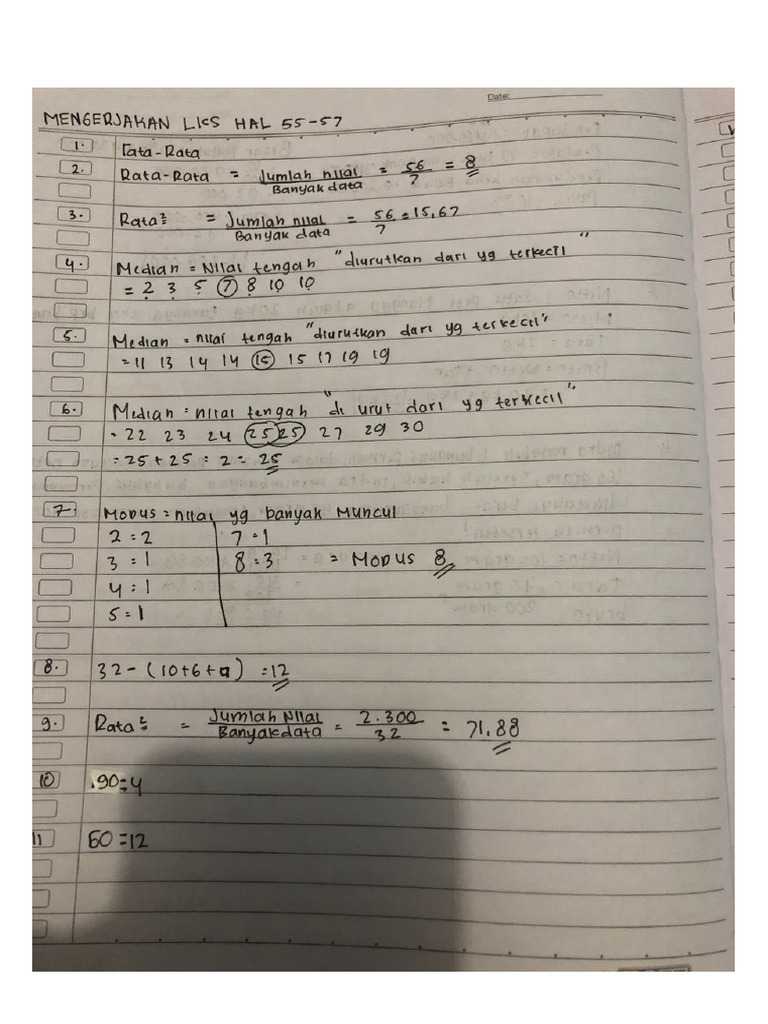 Date:
MENGERJAKAN LKS HAL 55-57
1. Rata-Rata
2. Rata-Rata = Jumlah nilai / Banyak data = 56 / 7 = 8
3. Rata² = Jumlah nilai / Banyak data = 56 / 7 = 15,67
4. Median = Nilai tengah "diurutkan dari yg terkecil"
= 2 3 5 7 8 10 10
5. Median = nilai tengah "diurutkan dari yg terkecil"
= 11 13 14 14 15 15 17 19 19
6. Median = nilai tengah "di urut dari yg terkecil"
= 22 23 24 25 25 27 29 30
= 25 + 25 : 2 = 25
7. Modus = nilai yg banyak Muncul
2 = 2 7 = 1
3 = 1 8 = 3 = Modus 8
4 = 1
5 = 1
8. 32 - (10+6+a) = 12
9. Rata² = Jumlah Nilai / Banyak data = 2.300 / 32 = 71,88
10 90 = 4
11 60 = 12